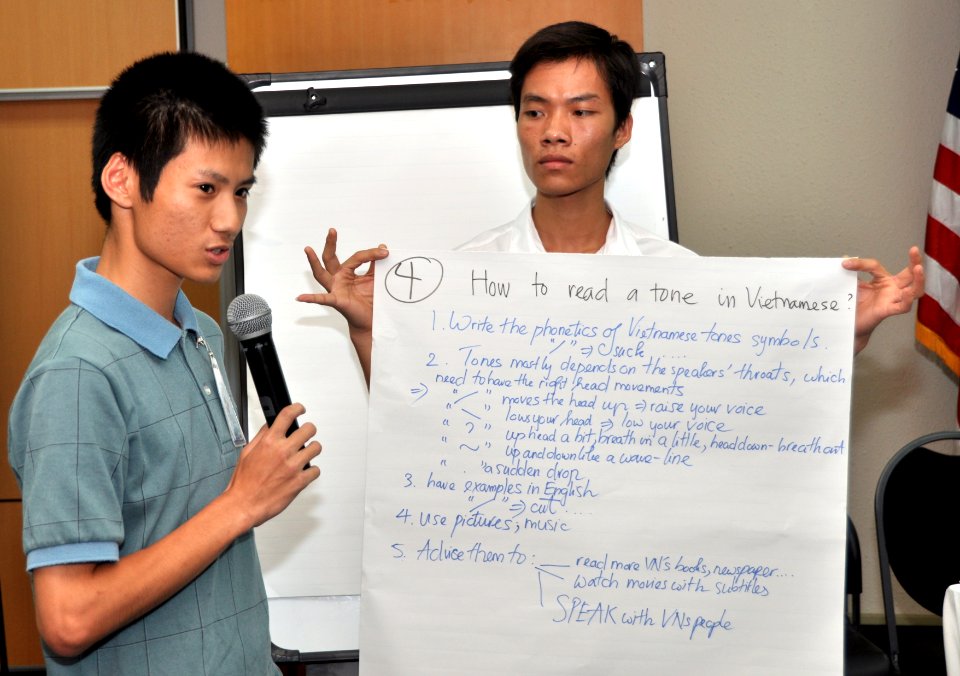 4 How to read a tone in Vietnamese?
1. Write the phonetics of Vietnamese tones symbols.
"/" ⇒ suck .....
2. Tones mostly depends on the speakers' throats, which
need to have the right head movements
⇒ "/" moves the head up ⇒ raise your voice
"\" lows your head ⇒ low your voice
"?" up head a bit, breath in a little, head down - breath out
"~" up and down like a wave-line
"." a sudden drop
3. have examples in English
"/" ⇒ cut .....
4. Use pictures, music
5. Advise them to: read more VN's books, newspaper....
watch movies with subtitles
SPEAK with VNs people